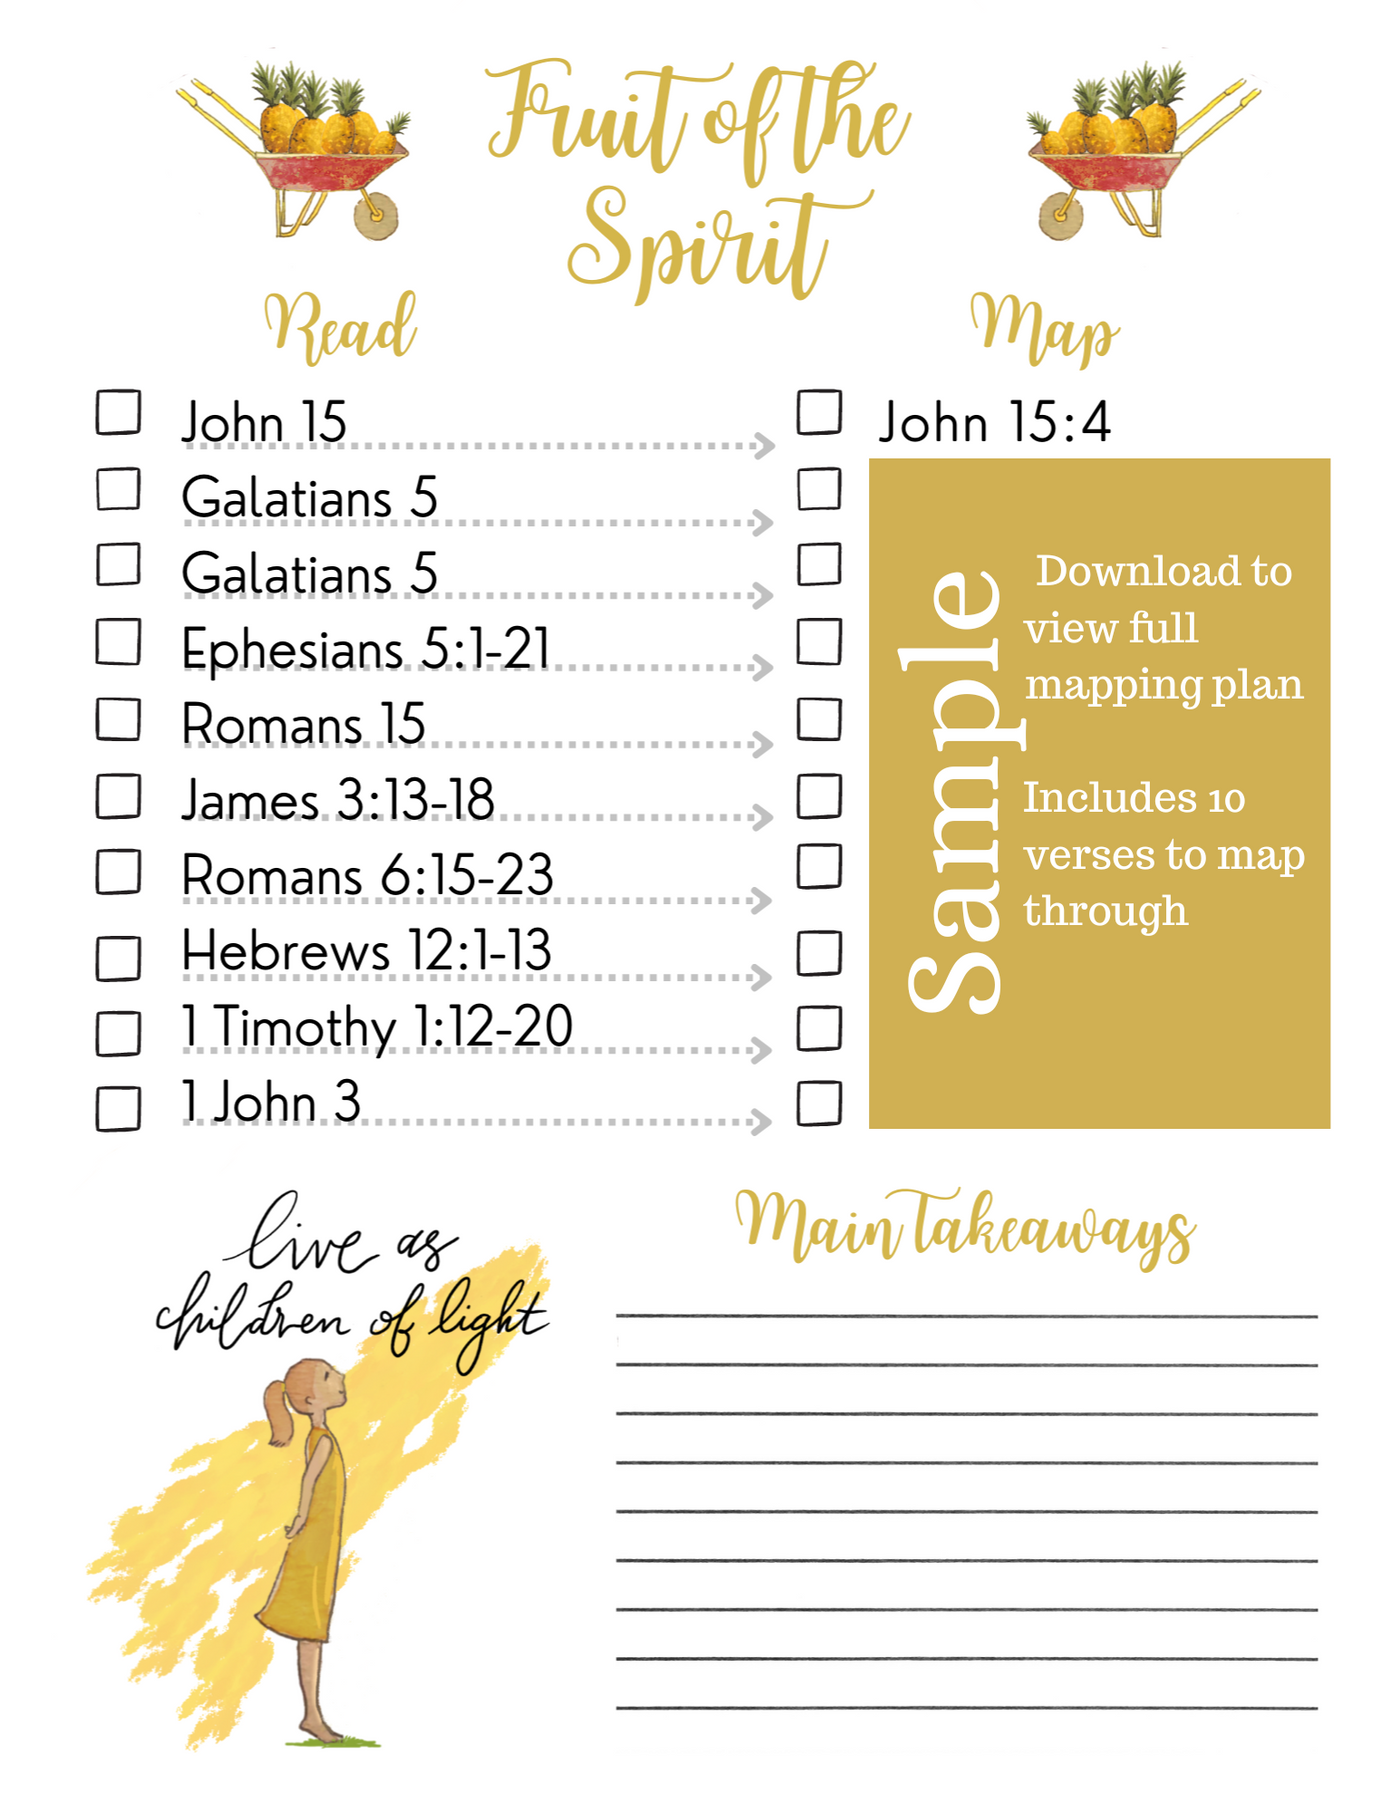 Fruit of the
Spirit
Read
Map
John 15
John 15:4
Galatians 5
Galatians 5
Ephesians 5:1-21
Romans 15
James 3:13-18
Romans 6:15-23
Hebrews 12:1-13
1 Timothy 1:12-20
1 John 3
Sample
Download to
view full
mapping plan
Includes 10
verses to map
through
live as
children of light
Main Takeaways